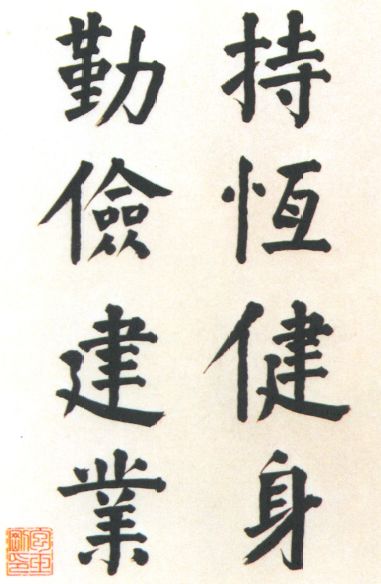 持恆健身
勤儉建業